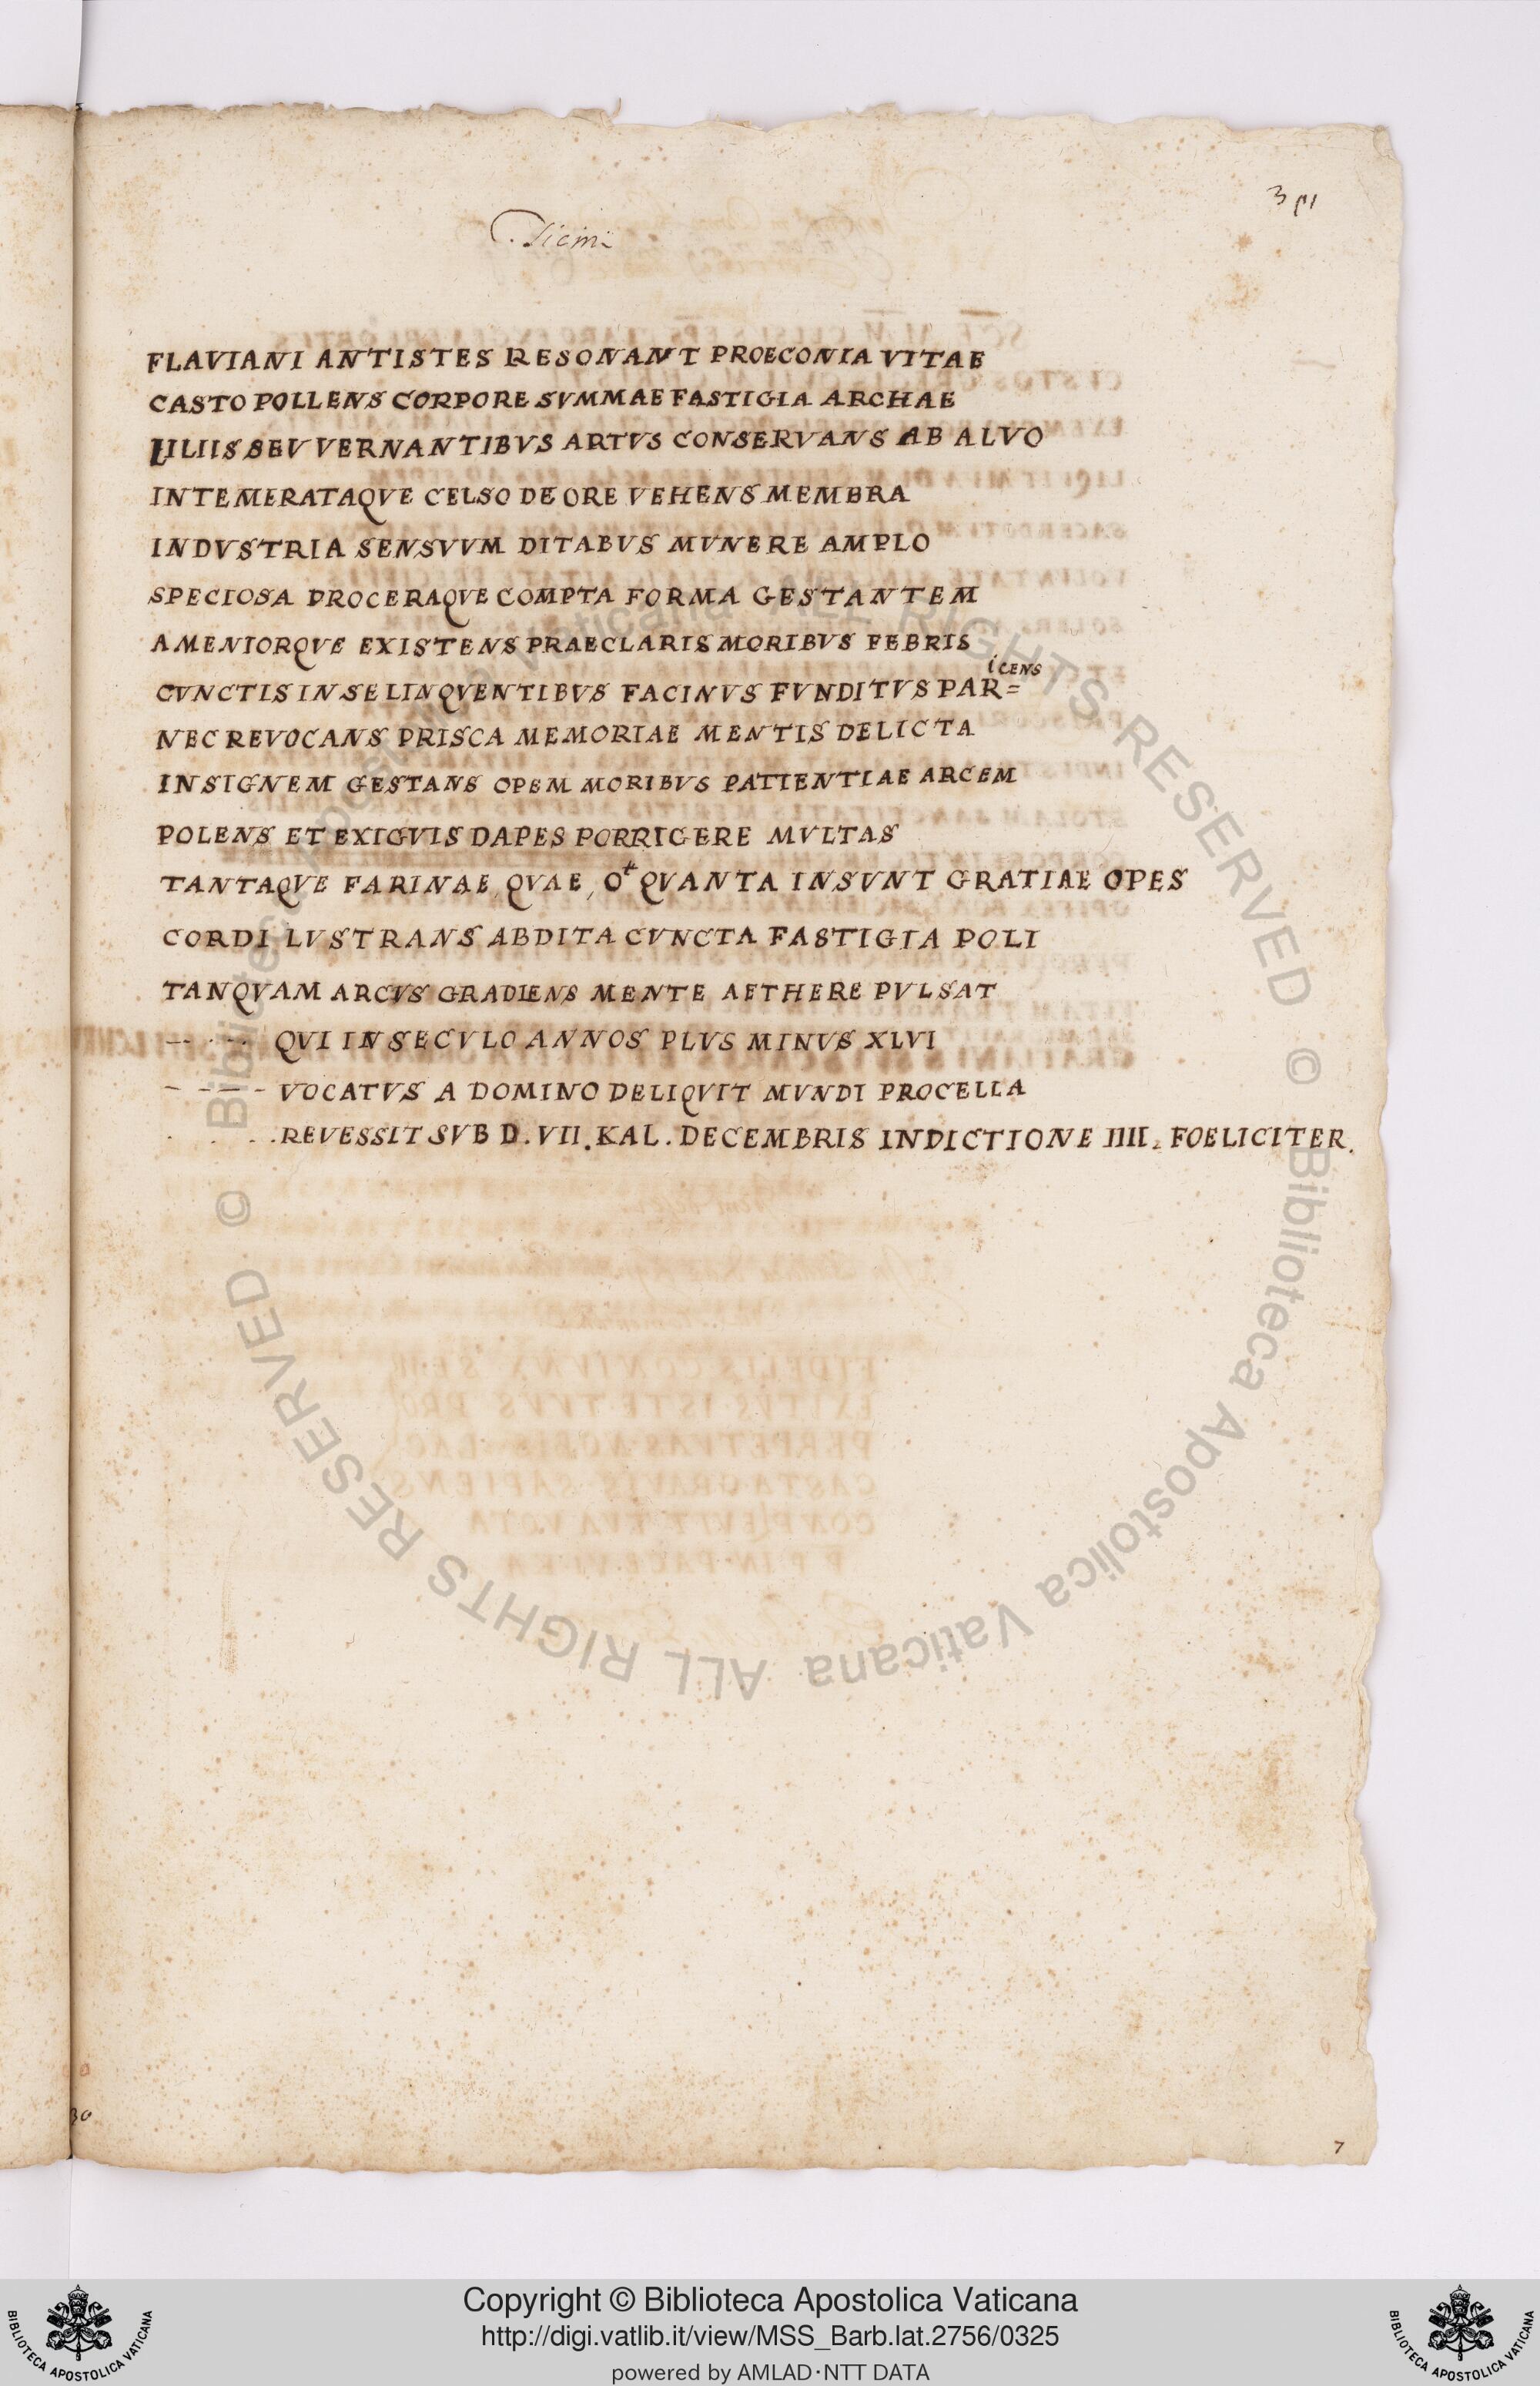 Ticini
FLAVIANI ANTISTES RESONANT PROECONIA VITAE
CASTO POLLENS CORPORE SVMMAE FASTIGIA ARCHAE
LILIIS SEV VERNANTIBVS ARTVS CONSERVANS AB ALVO
INTEMERATAQVE CELSO DE ORE VEHENS MEMBRA
INDVSTRIA SENSVVM DITABVS MVNERE AMPLO
SPECIOSA PROCERAQVE COMPTA FORMA GESTANTEM
AMENIORQVE EXISTENS PRAECLARIS MORIBVS FEBRIS
CVNCTIS IN SE LINQVENTIBVS FACINVS FVNDITVS PAR=icens
NEC REVOCANS PRISCA MEMORIAE MENTIS DELICTA
INSIGNEM GESTANS OPEM MORIBVS PATIENTIAE ARCEM
POLENS ET EXIGVIS DAPES PORRIGERE MVLTAS
TANTAQVE FARINAE, QVAE, Ot QVANTA INSVNT GRATIAE OPES
CORDI LVSTRANS ABDITA CVNCTA FASTIGIA POLI
TANQVAM ARCVS GRADIENS MENTE AETHERE PVLSAT
-- · -- QVI IN SECVLO ANNOS PLVS MINVS XLVI
- - - - VOCATVS A DOMINO DELIQVIT MVNDI PROCELLA
. . . . REVESSIT SVB D. VII. KAL. DECEMBRIS INDICTIONE IIII. FOELICITER.
30
7
© Biblioteca Apostolica Vaticana ALL RIGHTS RESERVED © Biblioteca Apostolica Vaticana ALL RIGHTS RESERVED
BIBLIOTECA APOSTOLICA VATICANA
Copyright © Biblioteca Apostolica Vaticana
http://digi.vatlib.it/view/MSS_Barb.lat.2756/0325
powered by AMLAD·NTT DATA
BIBLIOTECA APOSTOLICA VATICANA